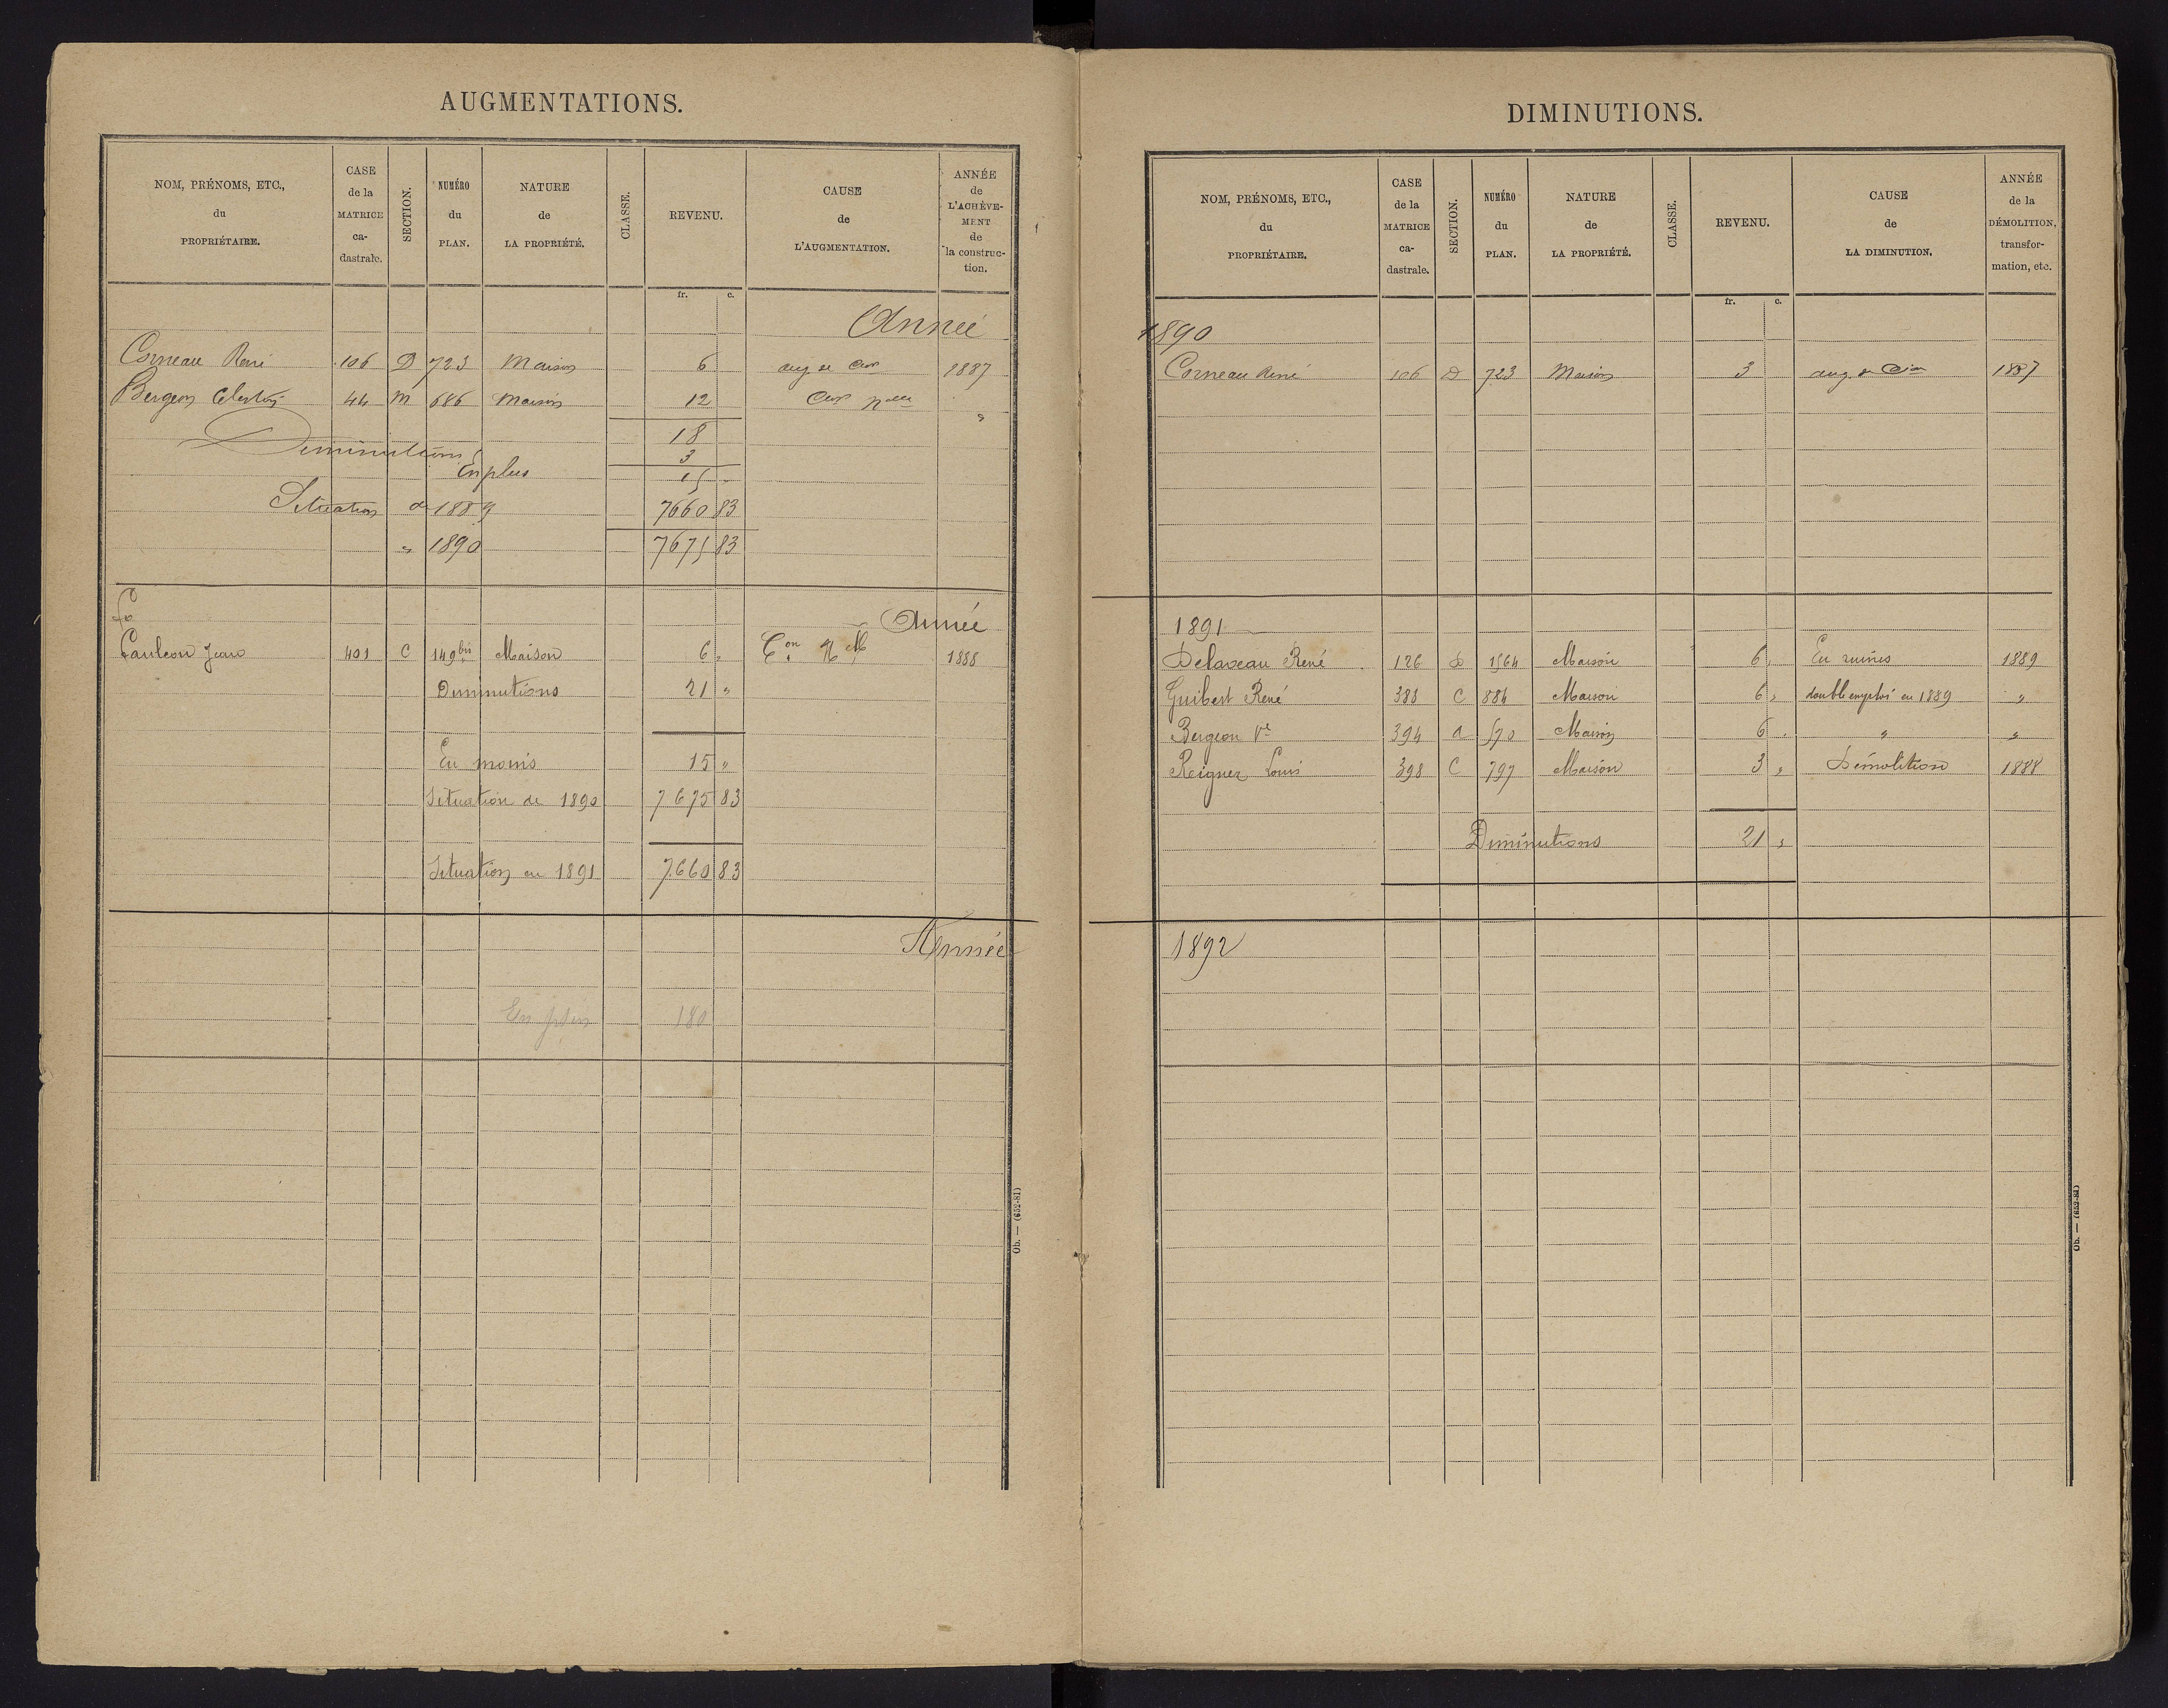 AUGMENTATIONS.
NOM, PRÉNOMS, ETC., du PROPRIÉTAIRE.
CASE de la MATRICE ca- dastrale.
SECTION.
NUMÉRO du PLAN.
NATURE de LA PROPRIÉTÉ.
CLASSE.
REVENU.
CAUSE de L'AUGMENTATION.
ANNÉE de L'ACHÈVE- MENT de la construc- tion.
fr. c.
Année
Corneau René 106 D 723 Maison 6 aug de 1887
Bergeon 44 M 686 Maison 12 nelle "
18
Diminutions 3
En plus 15 "
Situation de 1889 7660 83
" 1890 7675 83
Année
Jean 401 C 149 bis Maison 6 " Con Nlle 1888
Diminutions 21 "
En moins 15 "
Situation de 1890 7675 83
Situation en 1891 7.660 83
Année
En 180
Ob. — (652-81)
DIMINUTIONS.
NOM, PRÉNOMS, ETC., du PROPRIÉTAIRE.
CASE de la MATRICE ca- dastrale.
SECTION.
NUMÉRO du PLAN.
NATURE de LA PROPRIÉTÉ.
CLASSE.
REVENU.
CAUSE de LA DIMINUTION.
ANNÉE de la DÉMOLITION, transfor- mation, etc.
fr. c.
1890
Corneau René 106 D 723 Maison 3 aug. de 1887
1891
Delaveau René 126 D 1564 Maison 6 " En ruines 1889
Guibert René 388 C 884 Maison 6 " double emploi en 1889 "
Bergeon Ve 394 A 570 Maison 6 " " "
Reigner Louis 398 C 797 Maison 3 " Démolition 1888
Diminutions 21 "
1892
Ob. — (652-81)